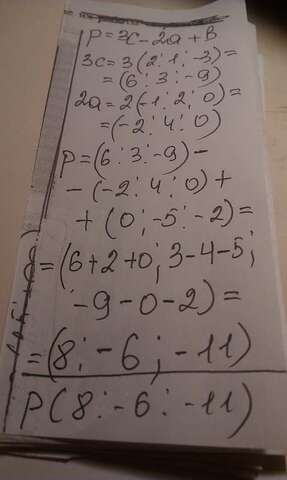 p = 3c - 2a + B
3c = 3 (2 ; 1 ; -3) =
= (6 ; 3 ; -9)
2a = 2 (-1 ; 2 ; 0) =
= (-2 ; 4 ; 0)
p = (6 ; 3 ; -9) -
- (-2 ; 4 ; 0) +
+ (0 ; -5 ; -2) =
= (6+2+0 ; 3-4-5 ;
-9-0-2) =
= (8 ; -6 ; -11)
p (8 ; -6 ; -11)